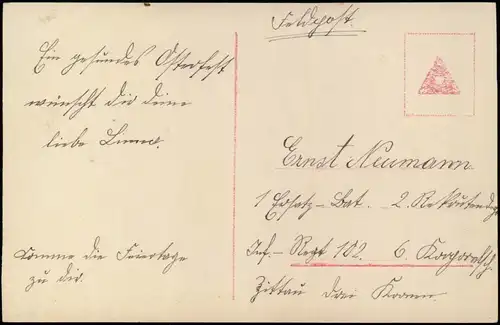 Feldpost.
Ein gesundes Osterfest
wünscht dir deine
liebe
Komme die Feiertage
zu dir.
Ernst Neumann
1 Ersatz-Bat. 2. Rekrutendep
Inf-Regt 102. 6. Korporalsch.
Zittau drei Kronen